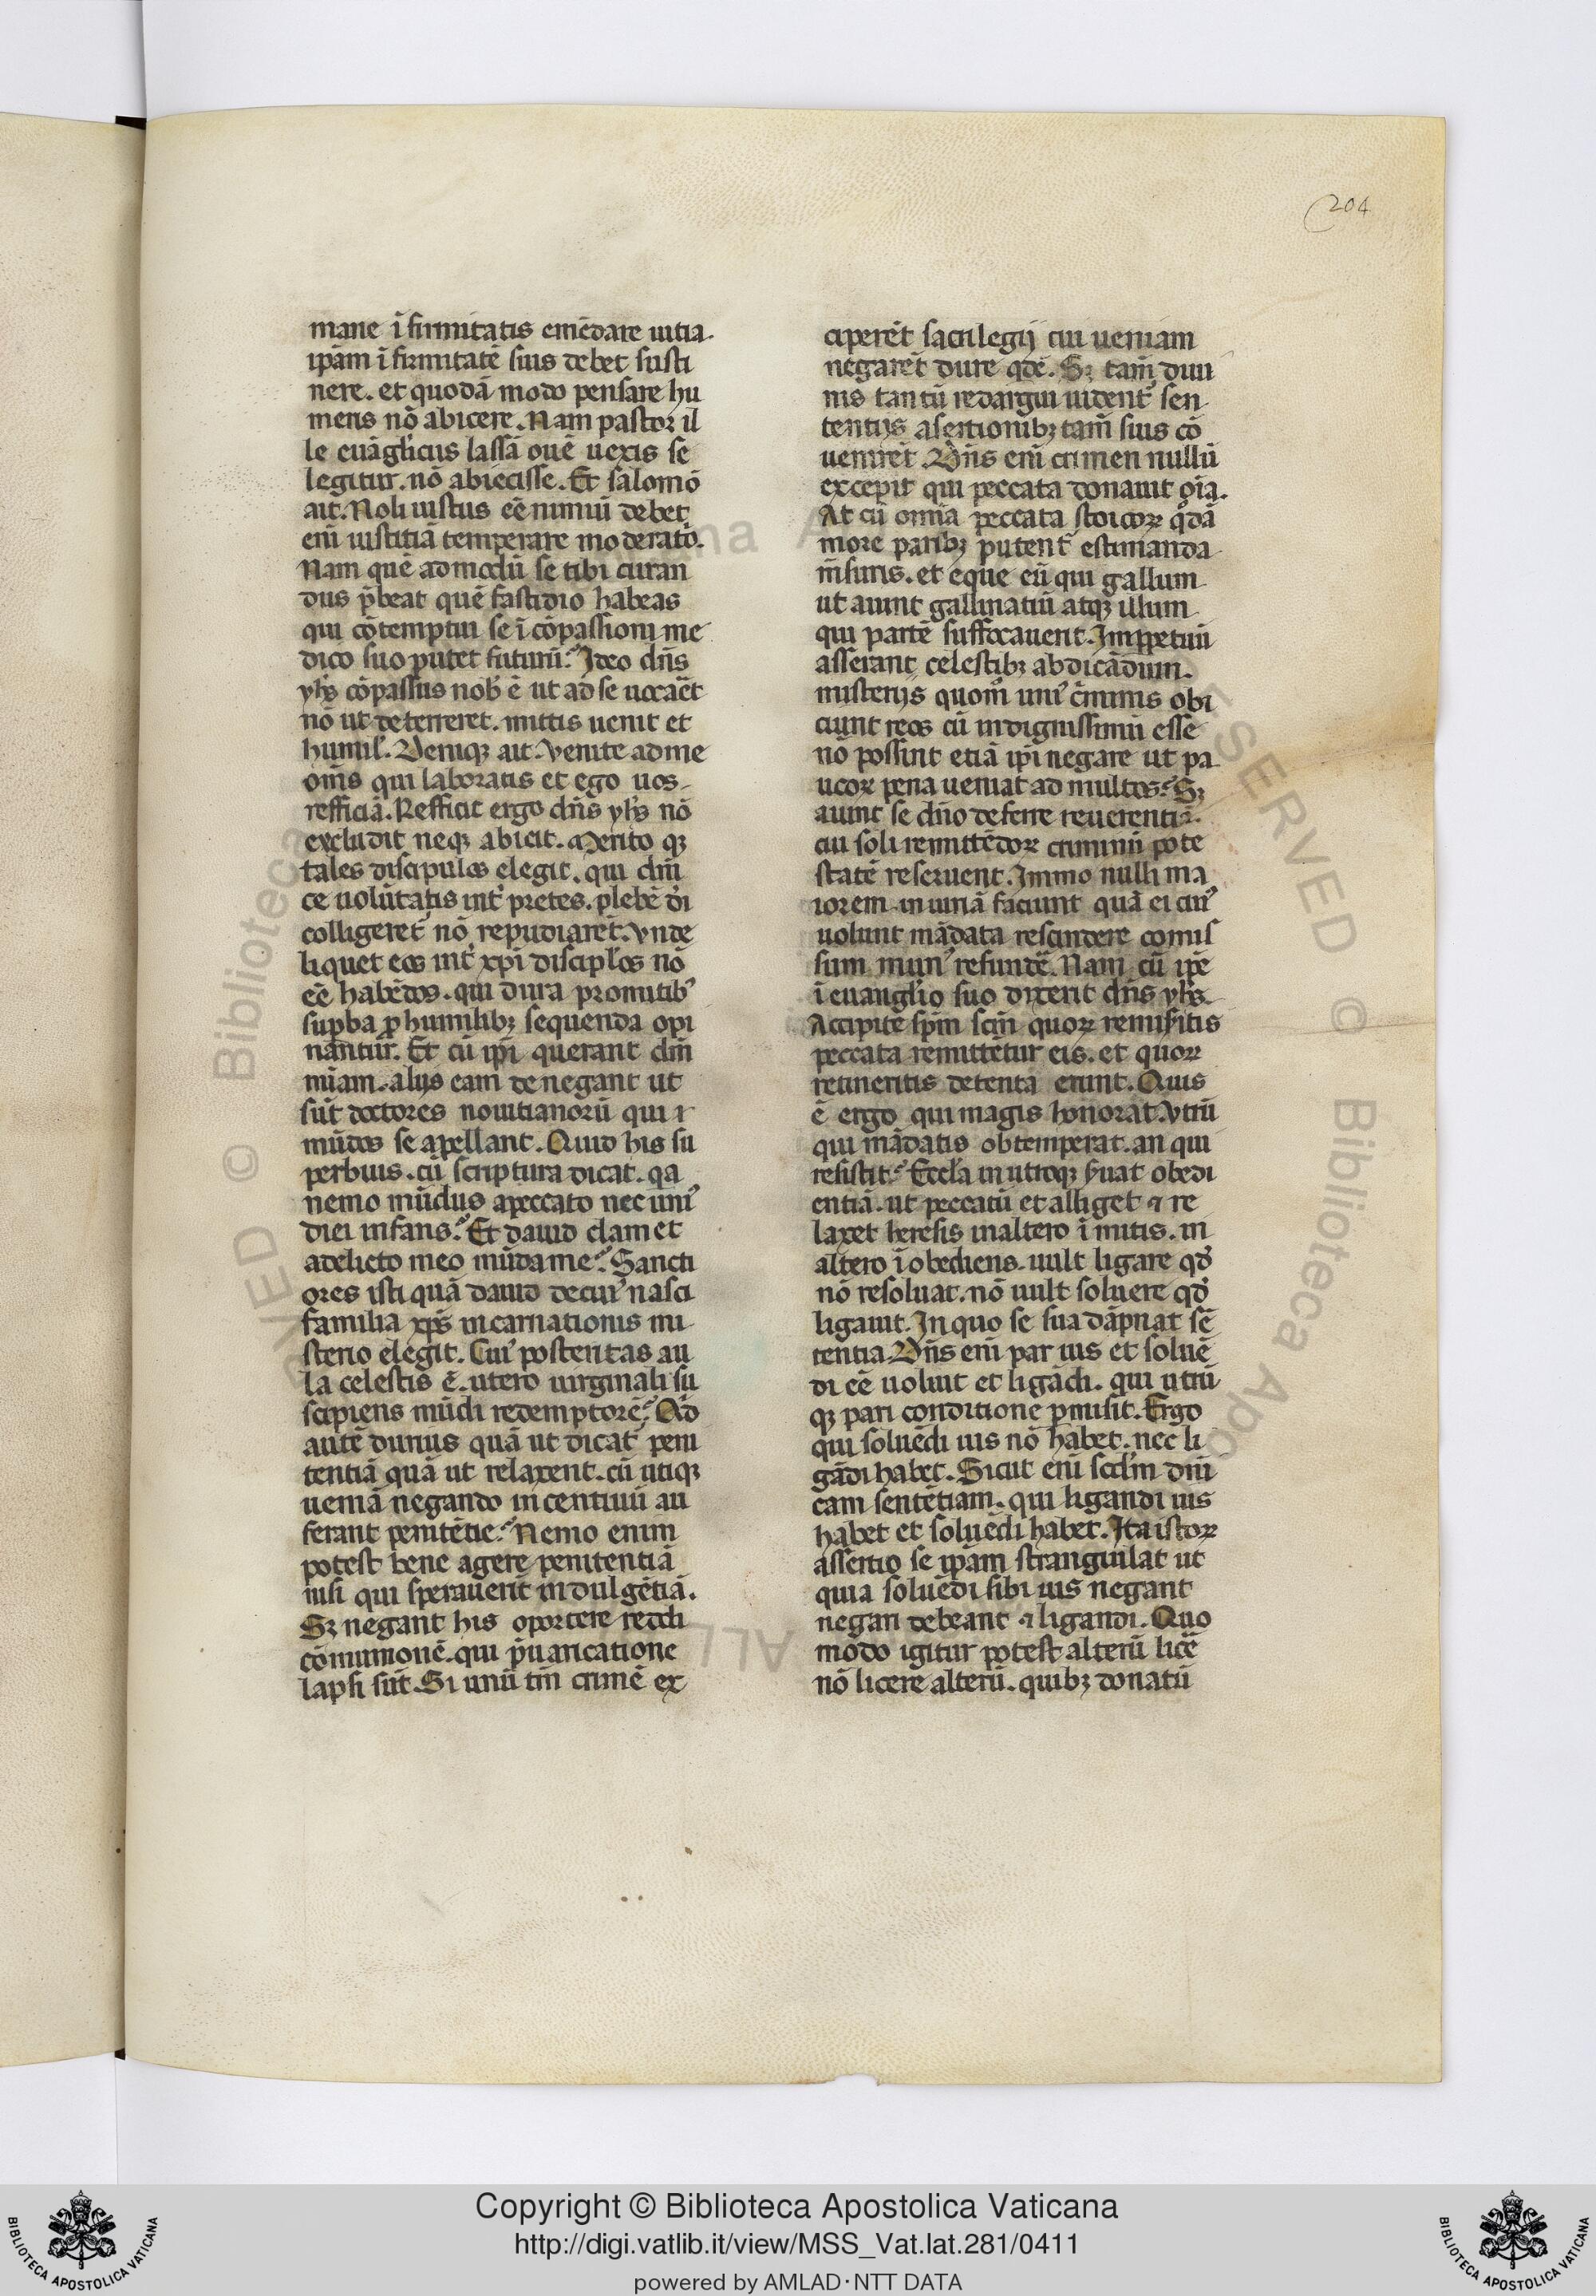 204
mane ĩ firmitatis emẽdare uitia.
ip̃am ĩ firmitatẽ suis debet susti
nere. et quodã modo pensare hu
meris nõ abicere. Nam pastor il
le euãgl̃icus lassã ouẽ uexis se
legitur. nõ abiecisse. Et salomõ
ait. Noli iustus eẽ nimiũ debet
eni̅ iustitiã temperare moderatõ.
Nam quẽ admodũ se tibi curan
dus p̃beat quẽ fastidio habeas
qui cõtemptui se ĩ cõpassioni me
dico suo putet futurũ? Ideo dñs
yh̃s cõpassus nob̾ ẽ ut ad se uocar̃et
nõ ut deterreret. mittis uenit et
humil̾. Deniqꝫ ait. Venite ad me
om̃s qui laboratis et ego uos
refficiã. Refficit ergo dñs yh̃s nõ
excludit neqꝫ abicit. Merito qꝫ
tales discipulos elegit. qui dñi
ce uolũtatis int̾pretes. plebẽ dĩ
colligeret nõ repudiarẽt. Vnde
liquet eos int̾ xp̃i discip̃los nõ
eẽ habẽdos. qui dura pro mitib̾
supba p humilibꝫ sequenda opi
nantur. Et cũ ip̃i querant dñi
mĩam. alijs eam denegant ut
sũt doctores nouitianorũ qui
mũdos se apellant. Quid his su
perbius. cũ scriptura dicat. qa
nemo mũdus apeccato nec uni̾
diei infans? Et dauid clamet
adelicto meo mũda me? Sancti
ores isti quã dauid decui̾ nasci
familia xp̃s incarnationis mi
sterio elegit. Cui̾ posteritas au
la celestis ẽ. utero uirginali su
scipiens mũdi redemptorẽ? Qd̾
autẽ durius quã ut dicat peni
tentiã quã ut relaxent. cũ utiqꝫ
ueniã negando incentiuũ au
ferant penitẽtie? Nemo enim
potest bene agere penitentiã
nisi qui sperauerit indulgẽtiã.
Sꝫ negant his oportere reddi
cõmunionẽ. qui p̃uaricatione
lapsi sũt. Si unũ tm̃ crimẽ ex
ciperẽt sacrilegij cui ueniam
negarẽt dure qdẽ. Sꝫ tam̃ diui
nis tantũ redargui uident̾ sen
tentijs asertionibꝫ tam̃ suis cõ
uenirẽt. Dñs eni̅ crimen nullũ
excepit qui peccata donauit oĩa.
At cũ omĩa peccata stoicoꝝ q̾dã
more paribꝫ putent estimanda
m̃suris. et eque eũ qui gallum
ut aiunt gallinatiũ atqꝫ illum
qui partẽ suffocauerit. Imppetuũ
asserant celestibꝫ abdicãdum.
misterijs quom̃ uni̾ c̃minis obi
ciunt reos cũ indignissimũ esse
nõ possint etiã ip̃i negare ut pa
ucoꝝ pena ueniat ad multos? Sꝫ
aiunt se dño deferre reuerentiã.
cui soli remittẽdoꝝ criminũ pote
statẽ reseruent. Immo nulli ma
iorem iniuriã faciunt quã ei cui̾
uolunt mãdata rescindere comis
sum mun̾ refundẽ. Nam cũ ip̃e
ĩ euangl̾io suo dixerit dñs yh̃s.
Accipite sp̃m scm̃ quoꝝ remisitis
peccata remittẽtur eis. et quoꝝ
retineritis detenta erunt. Quis
ẽ ergo qui magis honorat. Vtrũ
qui mãdatis obtemperat. an qui
resistit? Eccl̾a in utroqꝫ s̾uat obedi
entiã. ut peccatũ et alliget ⁊ re
laxet heresis inaltero ĩ mitis. in
altero ĩ obediens. uult ligare qd̾
nõ resoluat. nõ uult soluere qd̾
ligauit. In quo se sua dãpnat sẽ
tentia. Dñs eni̅ par ius et soluẽ
di eẽ uoluit et ligãdi. qui utrũ
qꝫ pari conditione pmisit. Ergo
qui soluẽdi ius nõ habet. nec li
gãdi habet. Sicut eni̅ scd̾m dñi
cam sentẽtiam. qui ligandi ius
habet et soluẽdi habet. Ita istoꝝ
assertio se ip̃am strangulat ut
quia soluẽdi sibi ius negant
negari debeant ⁊ ligandi. Quo
modo igitur potest alterũ licẽ
nõ licere alterũ. quibꝫ donatũ
Copyright © Biblioteca Apostolica Vaticana
http://digi.vatlib.it/view/MSS_Vat.lat.281/0411
powered by AMLAD·NTT DATA